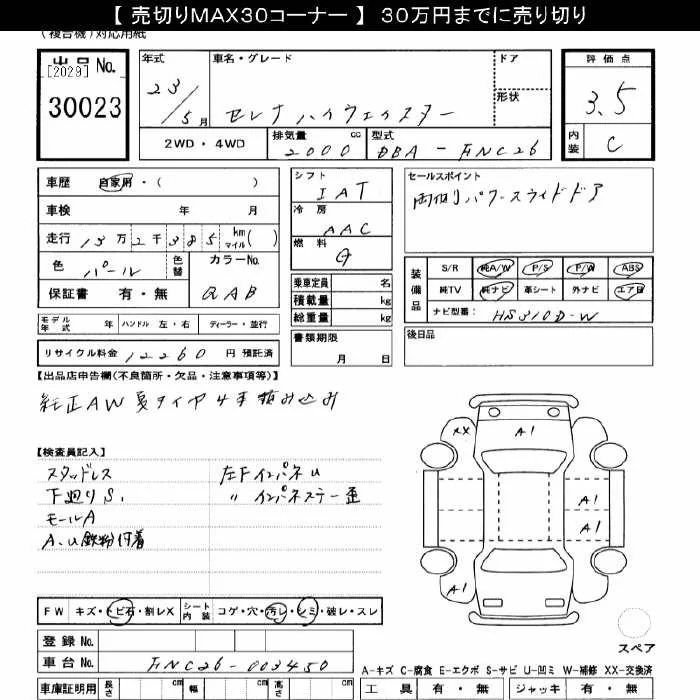 【 売切りMAX30コーナー 】 30万円までに売り切り
(複合機)対応用紙
出品 No.
[2029]
30023
年式
23/5月
車名・グレード
セレナハイウェイスター
ドア
形状
評価点
3.5
内装
C
2WD・4WD
排気量
2000 cc
型式
DBA-FNC26
車歴 自家用・( )
車検 年 月
走行 13万2千385 km マイル( )
色 パール
色替
カラーNo.
QAB
保証書 有・無
シフト
IAT
冷房
AAC
燃料
G
乗車定員 名
積載量 kg
総重量 kg
セールスポイント
両側パワースライドドア
装備品
S/R 純A/W P/S P/W ABS
純TV 純ナビ 革シート 外ナビ エア B
ナビ型番: HS310D-W
モデル年式 年 ハンドル 左・右 ディーラー・並行
リサイクル料金 12260 円 預託済
書類期限
月 日
後日品
【出品店申告欄(不良箇所・欠品・注意事項等)】
純正AW夏タイヤ4本積み込み
【検査員記入】
スタッドレス
下廻りS.
モールA
A.U鉄粉付着
左FインパネU
〃 インパネステー歪
XX
A1
A1
A1
A1
スペア
FW キズ・トビ石・割レX
シート内装 コゲ・穴・汚レ・シミ・破レ・スレ
登録 No.
車台 No. FNC26-003450
A-キズ C-腐食 E-エクボ S-サビ U-凹ミ W-補修 XX-交換済
車庫証明用 長さ cm 幅 cm 高さ cm
工具 有・無 ジャッキ 有・無